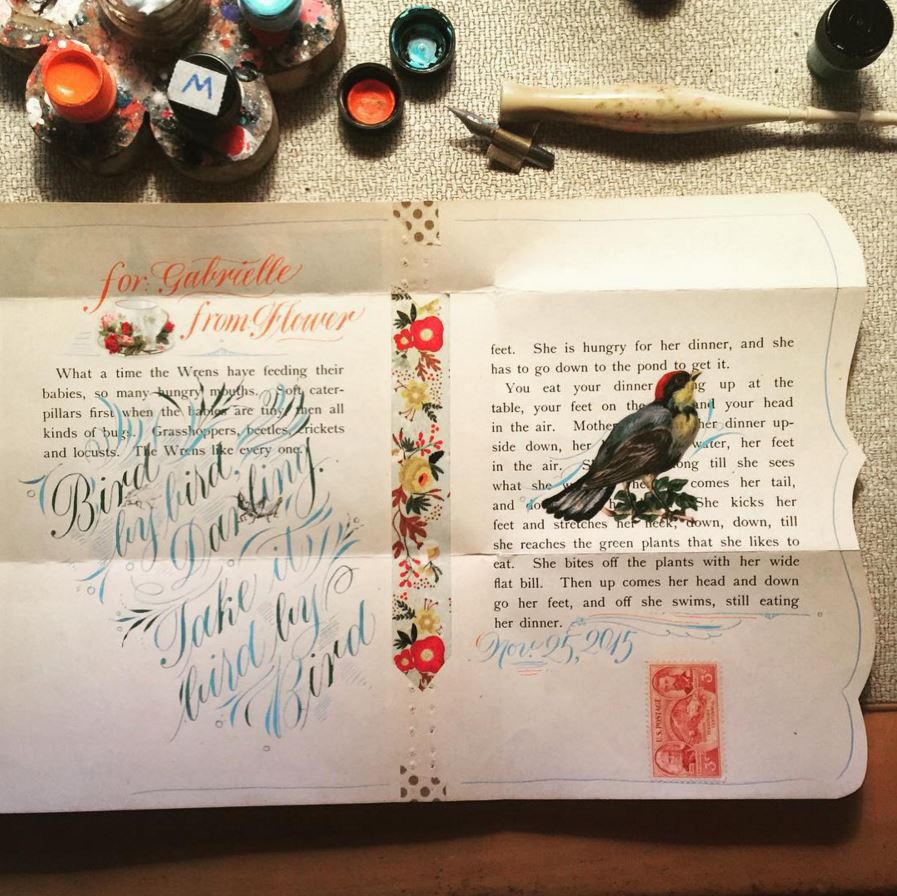 M
for Gabrielle
from Flower
What a time the Wrens have feeding their
babies, so many hungry mouths. Soft cater-
pillars first when the babies are tiny, then all
kinds of bugs. Grasshoppers, beetles, crickets
and locusts. The Wrens like every one.
Bird
by bird.
Darling.
Take it
bird by
Bird
feet. She is hungry for her dinner, and she
has to go down to the pond to get it.
You eat your dinner up at the
table, your feet on the and your head
in the air. Mother her dinner up-
side down, her water, her feet
in the air. long till she sees
what she comes her tail,
and She kicks her
feet and stretches her neck, down, down, till
she reaches the green plants that she likes to
eat. She bites off the plants with her wide
flat bill. Then up comes her head and down
go her feet, and off she swims, still eating
her dinner.
Nov. 25, 2015
U.S. POSTAGE
3¢
3¢